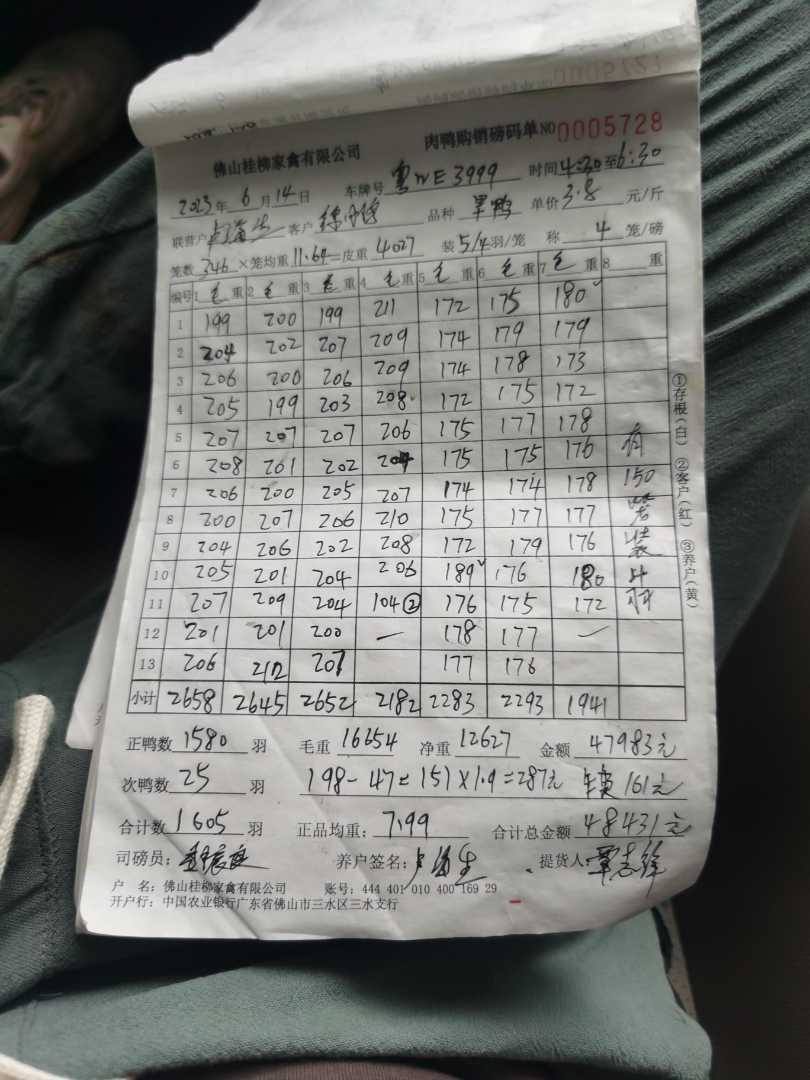 佛山桂柳家禽有限公司 肉鸭购销磅码单 NO 0005728
2023年 6月 14日 车牌号 粤WE3999 时间 4:30至6:30
联营户 客户 品种 单价 3.8 元/斤
笼数 346 ×笼均重 11.64 =皮重 4027 装 5/4 羽/笼 称 4 笼/磅
编号 1 毛 重 2 毛 重 3 毛 重 4 毛 重 5 毛 重 6 毛 重 7 毛 重 8 重
1 199 200 199 211 172 175 180
2 204 202 207 209 174 179 179
3 206 200 206 209 174 178 173
4 205 199 203 208 172 175 172
5 207 207 207 206 175 177 178
6 208 201 202 204 175 175 176 有
7 206 200 205 207 174 174 178 150
8 200 207 206 210 175 177 177
9 204 206 202 208 172 179 176 装
10 205 201 204 206 189 176 180 4
11 207 209 204 104② 176 175 172 羽
12 201 201 200 — 178 177 —
13 206 212 207 177 176
小计 2658 2645 2652 2182 2283 2293 1941
正鸭数 1580 羽 毛重 16654 净重 12627 金额 47983元
次鸭数 25 羽 198-47=151×1.9=287元 161元
合计数 1605 羽 正品均重: 7.99 合计总金额 48431元
司磅员: 养户签名: 提货人: 覃志锋
户 名: 佛山桂柳家禽有限公司 账号: 444 401 010 400 169 29
开户行: 中国农业银行广东省佛山市三水区三水支行
①存根(白) ②客户(红) ③养户(黄)